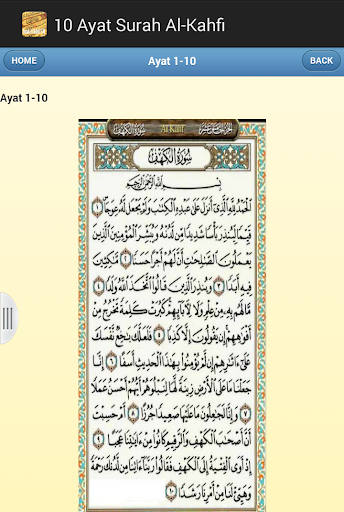 10 Ayat Surah Al-Kahfi
HOME
Ayat 1-10
BACK
Ayat 1-10
Al-Kahf
سُورَةُ الْكَهْفِ
بِسْمِ اللَّهِ الرَّحْمَٰنِ الرَّحِيمِ
الْحَمْدُ لِلَّهِ الَّذِي أَنْزَلَ عَلَىٰ عَبْدِهِ الْكِتَٰبَ وَلَمْ يَجْعَلْ لَهُ عِوَجًا ١
قَيِّمًا لِيُنْذِرَ بَأْسًا شَدِيدًا مِنْ لَدُنْهُ وَيُبَشِّرَ الْمُؤْمِنِينَ الَّذِينَ
يَعْمَلُونَ الصَّٰلِحَٰتِ أَنَّ لَهُمْ أَجْرًا حَسَنًا ٢ مَٰكِثِينَ
فِيهِ أَبَدًا ٣ وَيُنْذِرَ الَّذِينَ قَالُوا اتَّخَذَ اللَّهُ وَلَدًا ٤
مَا لَهُمْ بِهِ مِنْ عِلْمٍ وَلَا لِآبَائِهِمْ كَبُرَتْ كَلِمَةً تَخْرُجُ مِنْ
أَفْوَٰهِهِمْ إِنْ يَقُولُونَ إِلَّا كَذِبًا ٥ فَلَعَلَّكَ بَٰخِعٌ نَفْسَكَ
عَلَىٰ ءَاثَٰرِهِمْ إِنْ لَمْ يُؤْمِنُوا بِهَٰذَا الْحَدِيثِ أَسَفًا ٦ إِنَّا
جَعَلْنَا مَا عَلَى الْأَرْضِ زِينَةً لَهَا لِنَبْلُوَهُمْ أَيُّهُمْ أَحْسَنُ عَمَلًا
٧ وَإِنَّا لَجَٰعِلُونَ مَا عَلَيْهَا صَعِيدًا جُرُزًا ٨ أَمْ حَسِبْتَ
أَنَّ أَصْحَٰبَ الْكَهْفِ وَالرَّقِيمِ كَانُوا مِنْ ءَايَٰتِنَا عَجَبًا ٩
إِذْ أَوَى الْفِتْيَةُ إِلَى الْكَهْفِ فَقَالُوا رَبَّنَا ءَاتِنَا مِنْ لَدُنْكَ رَحْمَةً
وَهَيِّئْ لَنَا مِنْ أَمْرِنَا رَشَدًا ١٠